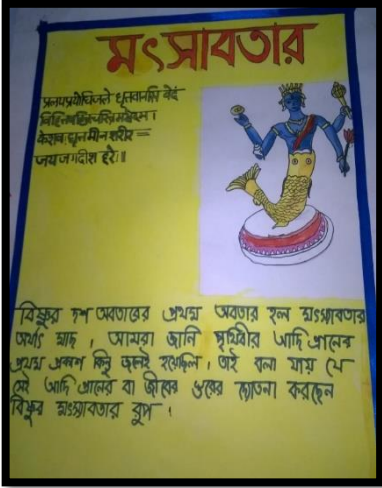 মৎসাবতার
প্রলয়পয়োধিজলে ধৃতবানসি বেদং
কেশব ধৃত মীন শরীর
জয় জগদীশ হরে॥
বিষ্ণুর দশ অবতারের প্রথম অবতার হল মৎস্যাবতার
অর্থাৎ মাছ। আমরা জানি পৃথিবীর আদি প্রানের
প্রথম প্রকাশ কিন্তু জলেই হয়েছিল। তাই বলা যায় যে
সেই আদি প্রানের বা জীবের স্তরের দ্যোতনা করছেন
বিষ্ণুর মৎস্যাবতার রুপ।